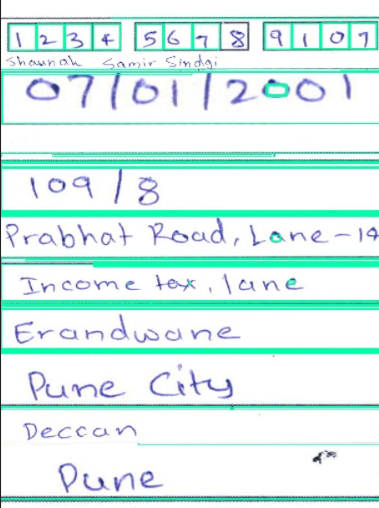 1 2 3 4 5 6 7 8 9 1 0 7
Shaunak Samir Sindgi
07/01/2001
109/8
Prabhat Road, Lane-14
Income tax, lane
Erandwane
Pune City
Deccan
Pune